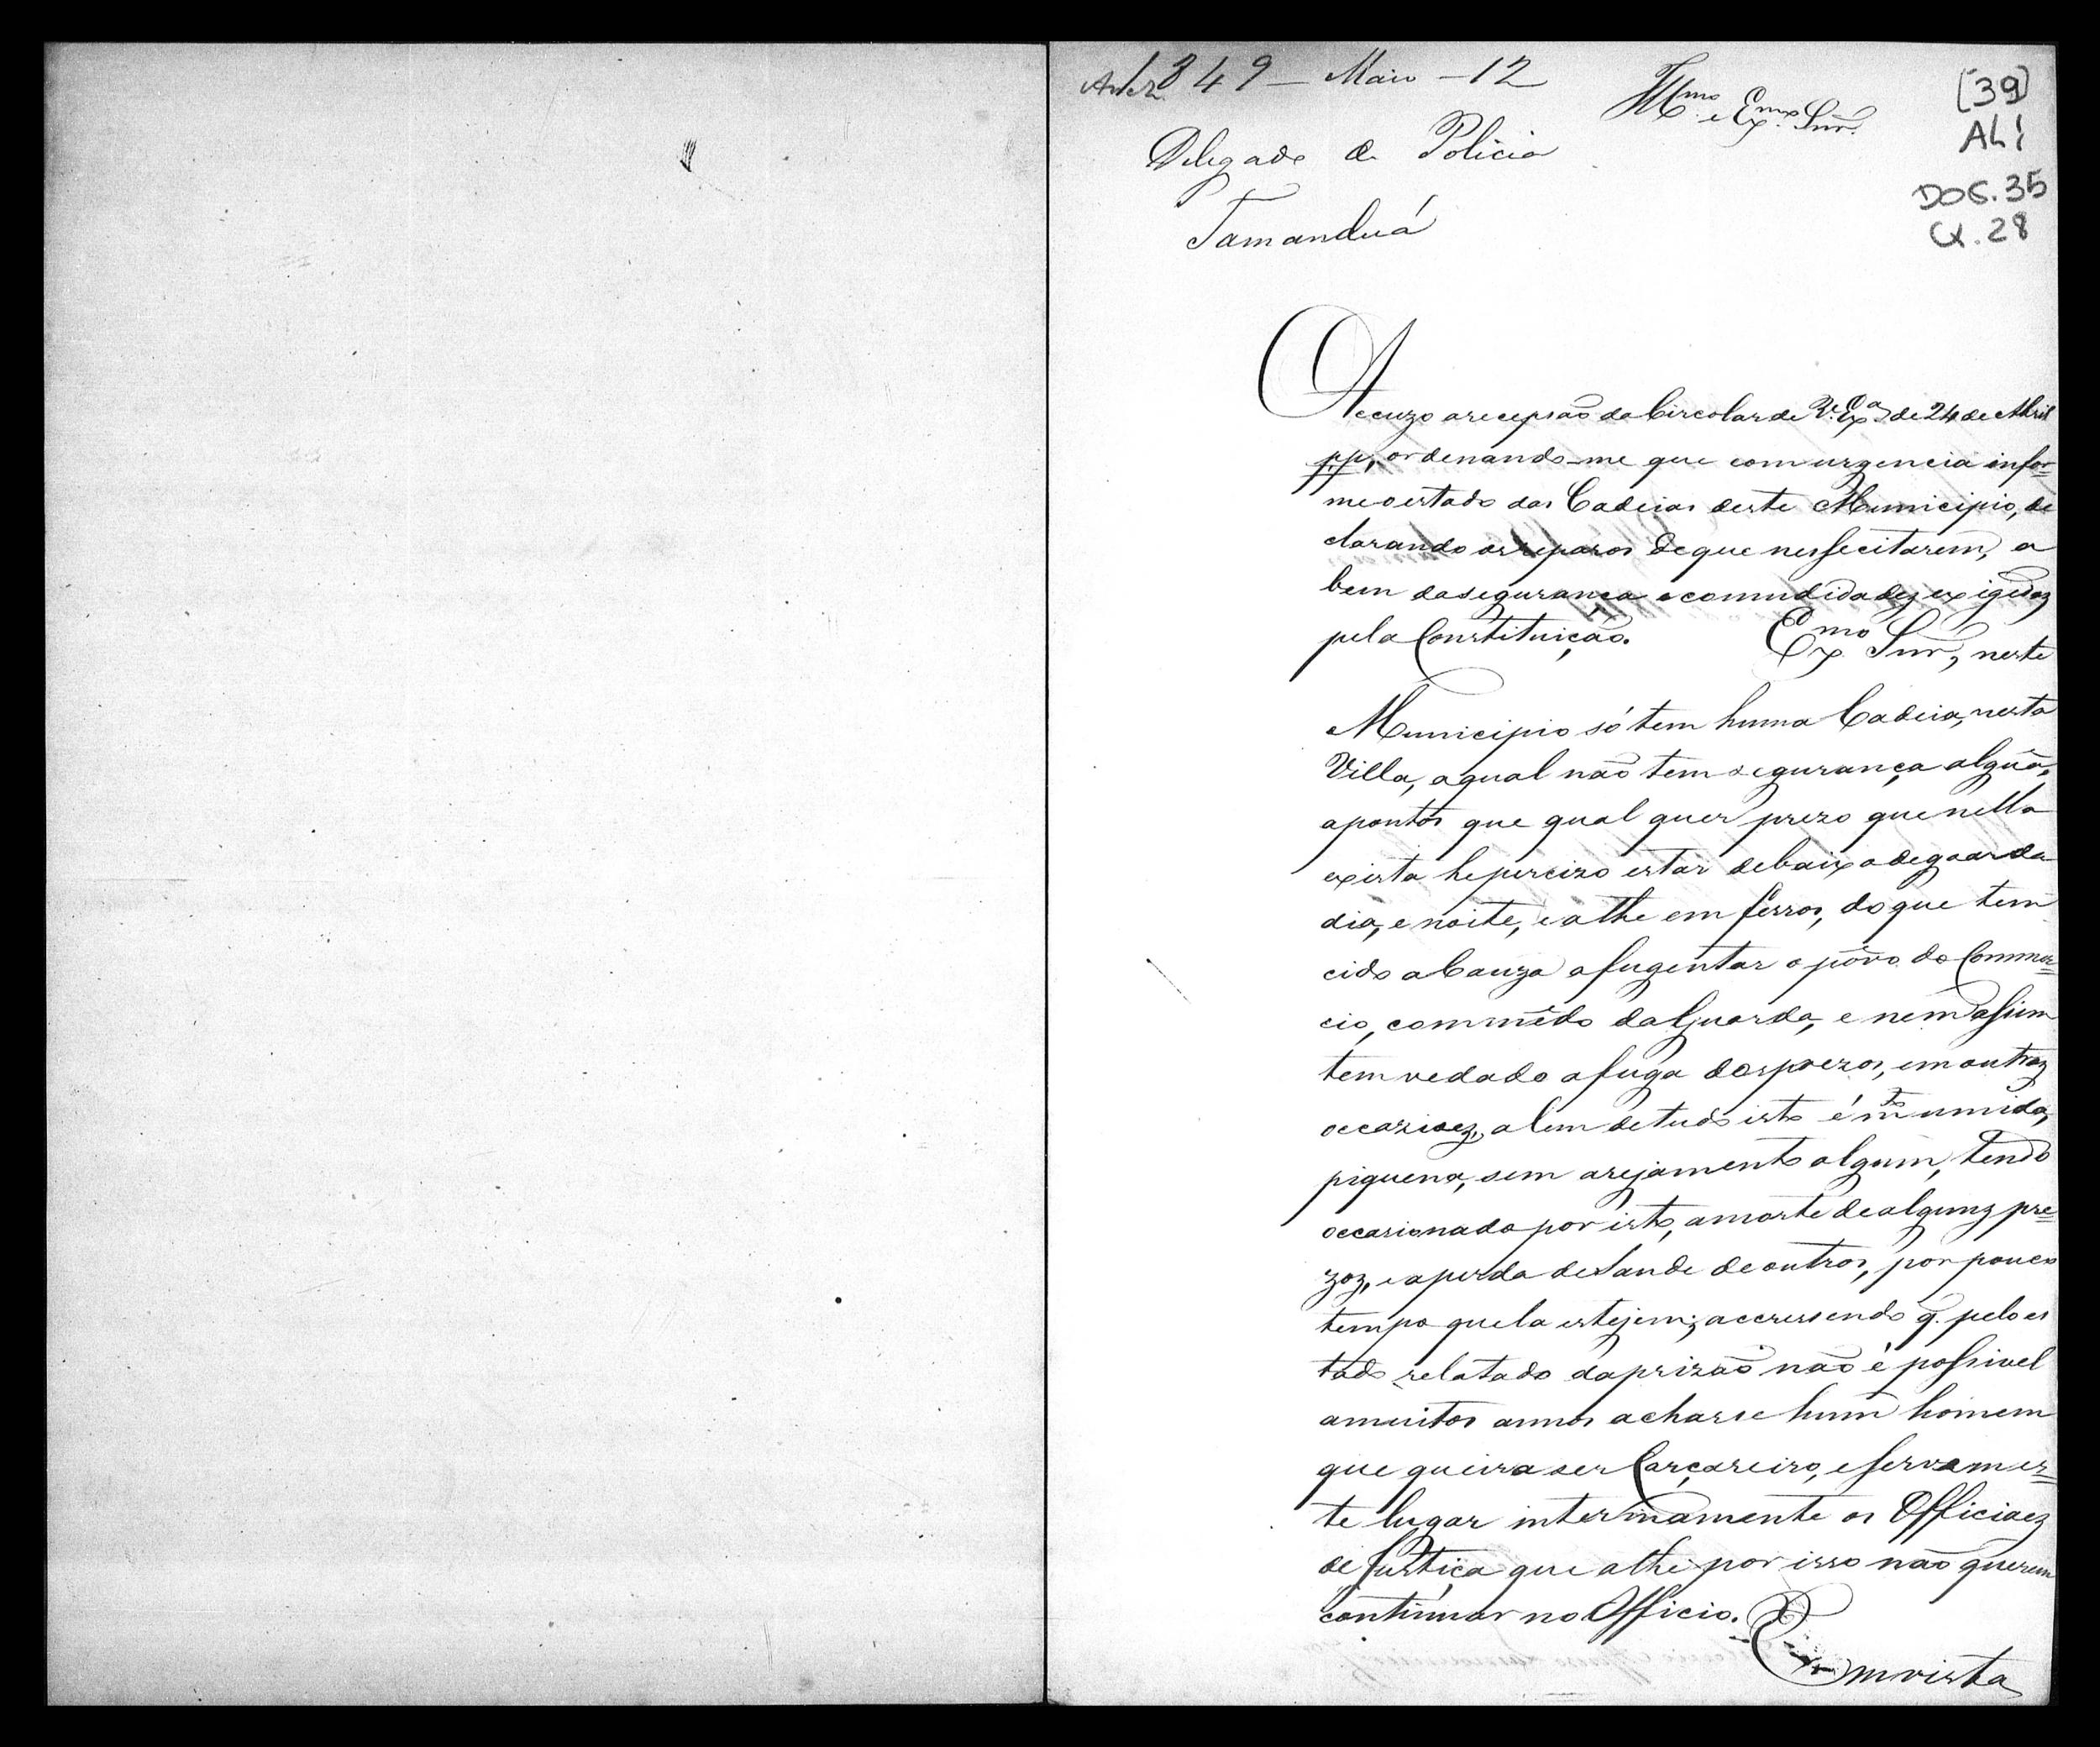 1849 – Maio – 12
Illmo. e Exmo. Snr.
[39]
AL1
DOC. 35
CX. 28
Delegado de Policia
Tamanduá
Accuzo a recepsaõ da Circolar de V. Exa. de 24 de Abril
p.p., ordenando-me que com urgencia infor=
me o estado das Cadeias deste Municipio, de
clarando os reparos de que nessecitarem, a
bem da segurança e comudidadez exigidaz
pela Constituiçaõ. Exmo Snr, neste
Municipio só tem huma Cadeia, nesta
Villa, a qual naõ tem segurança algũa,
a pontos que qual quer prezo que nella
exista he percizo estar debaixo de goarda
dia, e noite, e athe em ferros, do que tem
cido a Cauza afugentar o pôvo do Commer=
cio, com mêdo da Guarda, e nem assim
tem vedado a fuga dos prezos, em outraz
occazioez, alem de tudo isto é mto umida,
piquena, sem arejamento algum, tendo
occasionado por isto, a morte de algunz pre=
zoz, e a perda de Saude de outros, por pouco
tempo que la estejem; accressendo q. pelo es
tado relatado da prizaõ naõ é possivel
a muitos annos acharse hum homem
que queira ser Carçareiro, e servem es=
te lugar interinamente os Officiaez
de Justiça que athe por isso naõ querem
continuar no Officio.
Em vista